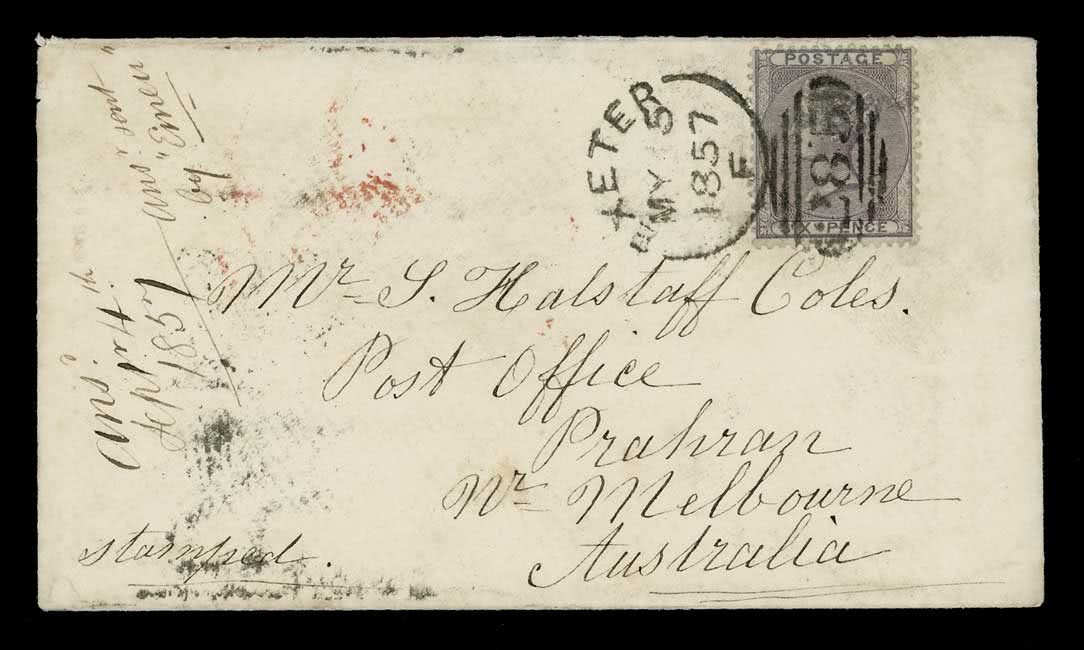 POSTAGE
SIX PENCE
EXETER
MY 5
1857
F
285
Mr S. Halstaff Coles.
Post Office
Prahran
Nr Melbourne
Australia
stamped.
Ansd
Septr 4th
1857
Ans & sent
by "Emeu"